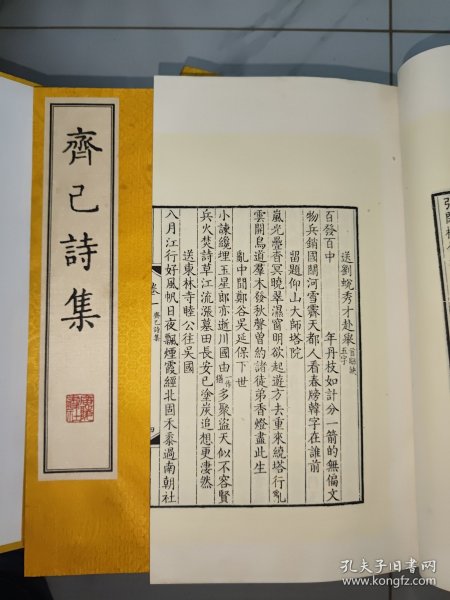 齊己詩集
送劉蛻秀才赴舉
百發百中 年丹枝如計分一箭的無偏文
物兵銷國關河雪霽天都人看春牓韓字在誰前
留題仰山大師塔院
嵐光疊杳冥曉翠濕窗明欲起遊方去重來繞塔行亂
雲開鳥道羣木發秋聲曾約諸徒弟香燈盡此生
亂中聞鄭谷吳延保下世
小諫纔埋玉星郎亦逝川國由 多聚盜天似不容賢
兵火焚詩草江流漲墓田長安已塗炭追想更凄然
送東林寺睦公往吳國
八月江行好風帆日夜飄煙霞經北固禾黍過南朝社
卷一
齊己詩集
四
孔夫子旧书网
www.kongfz.com